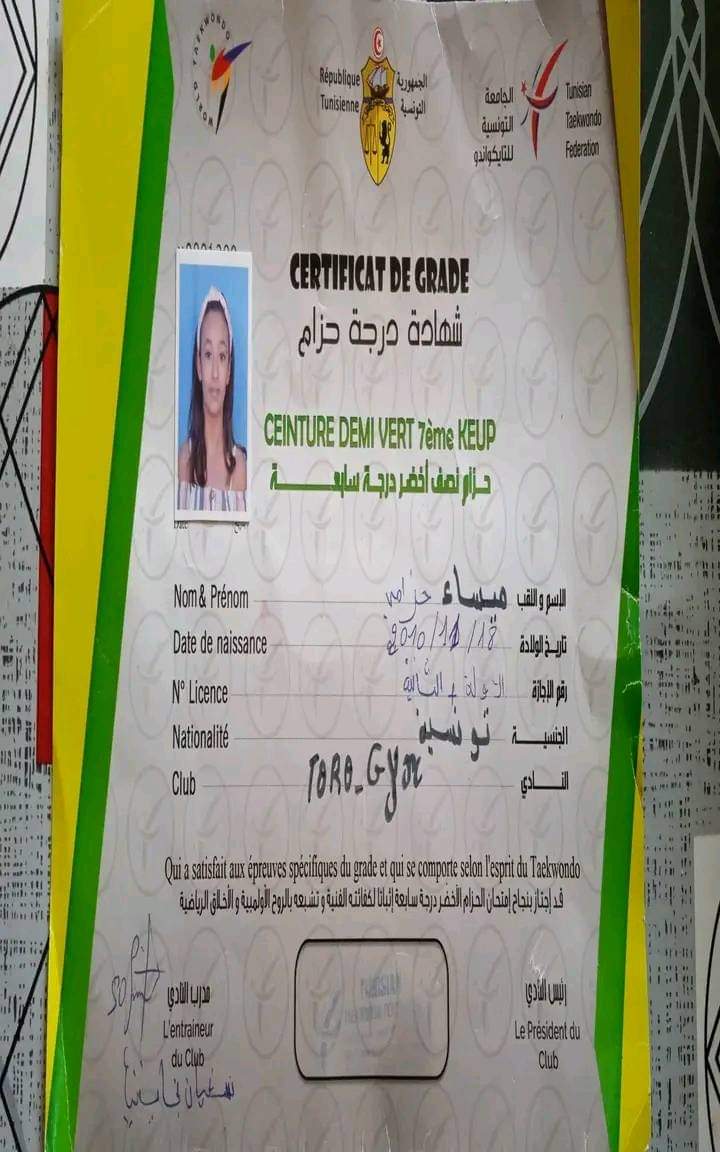 WORLD TAEKWONDO
République
Tunisienne
الجمهورية
التونسية
الجامعة
التونسية
للتايكواندو
Tunisian
Taekwondo
Federation
CERTIFICAT DE GRADE
شهادة درجة حزام
CEINTURE DEMI VERT 7ème KEUP
حزام نصف أخضر درجة سابعة
Nom & Prénom ميساء حزامي الإسم و اللقب
Date de naissance 2010/11/18 تاريخ الولادة
N° Licence الأولى + الثانية رقم الإجازة
Nationalité تونسية الجنسية
Club TORO-GYM النادي
Qui a satisfait aux épreuves spécifiques du grade et qui se comporte selon l'esprit du Taekwondo
قد إجتاز بنجاح إمتحان الحزام الأخضر درجة سابعة إثباتا لكفائته الفنية و تشبعه بالروح الأولمبية و الأخلاق الرياضية
مدرب النادي
L'entraineur
du Club
رئيس النادي
Le Président du
Club